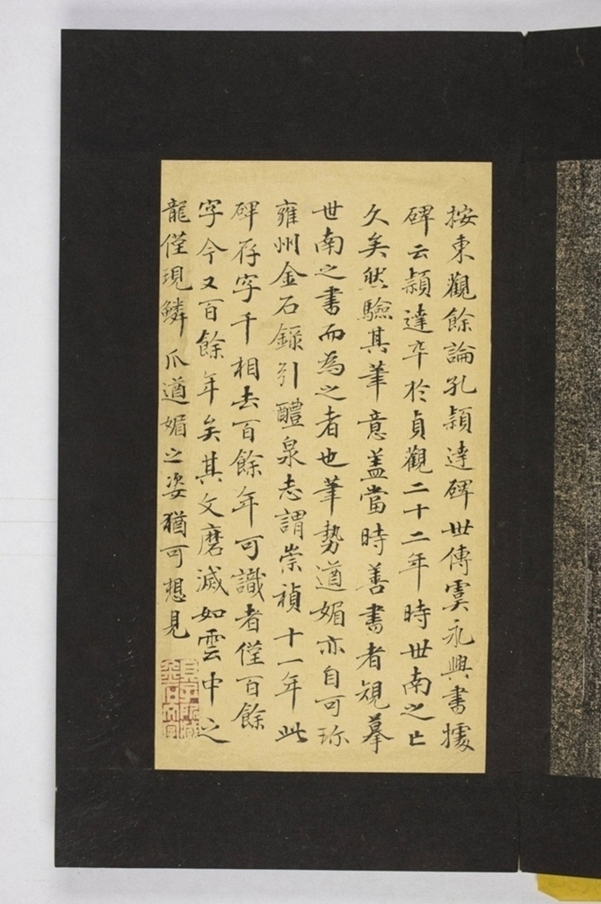 按東觀餘論孔頴達碑世傳虞永興書據
碑云頴達卒於貞觀二十二年時世南之亡
久矣然驗其筆意蓋當時善書者規摹
世南之書而為之者也筆勢遒媚亦自可珎
雍州金石錄引醴泉志謂崇禎十一年此
碑存字千相去百餘年可識者僅百餘
字今又百餘年矣其文磨滅如雲中之
龍僅現鱗爪遒媚之姿猶可想見